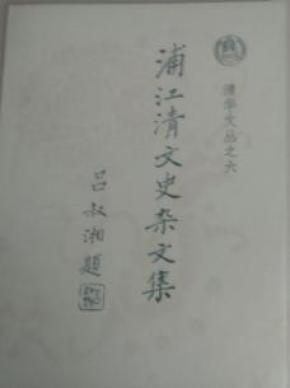 清华文丛之六
浦江清文史杂文集
吕叔湘题